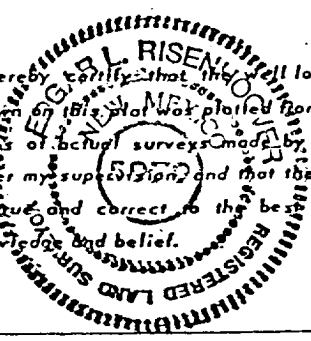 ereby certify that the well lo
n on this plat was plotted from
s of actual surveys made by
er my supervision, and that the
ue and correct to the best
ledge and belief.
EDGAR L. RISENHOOVER
NEW MEXICO
REGISTERED LAND SURVEYOR